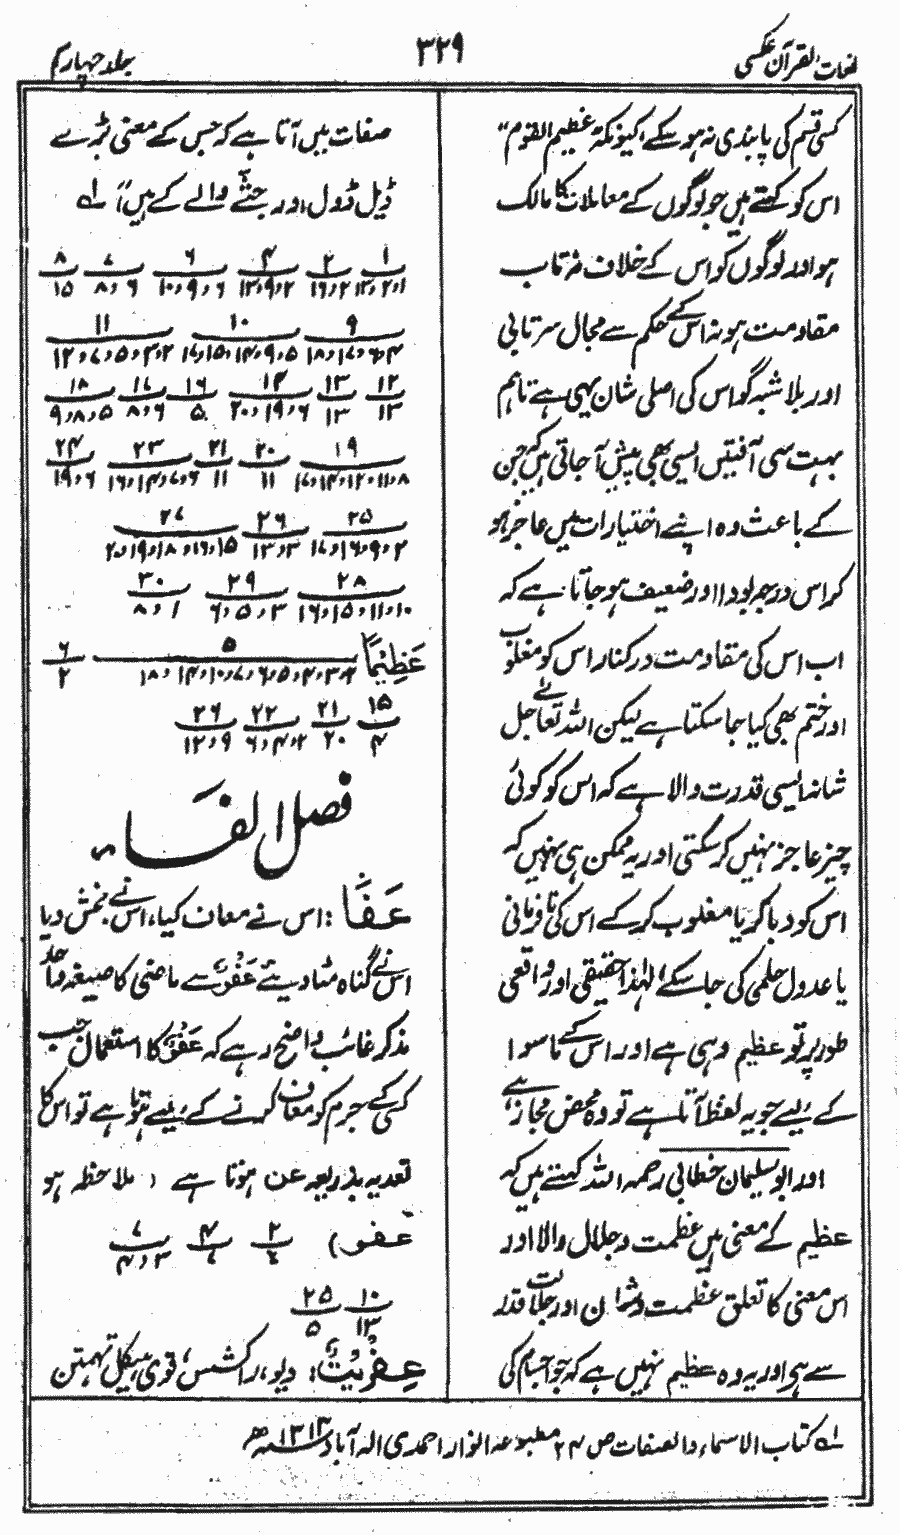 لغات القرآن عکسی
۳۲۹
جلد چہارم
کسی قسم کی پابندی نہ ہو سکے، کیونکہ عظیم القوم"
اس کو کہتے ہیں جو لوگوں کے معاملات کا مالک
ہو اور لوگوں کو اس کے خلاف نہ تاب
مقاومت ہو نہ اس کے حکم سے مجال سرتابی
اور بلا شبہ گو اس کی اصلی شان یہی ہے تاہم
بہت سی آفتیں ایسی بھی پیش آ جاتی ہیں کہ جن
کے باعث وہ اپنے اختیارات میں عاجز ہو
کر اس درجہ بودا اور ضعیف ہو جاتا ہے کہ
اب اس کی مقاومت درکنار اس کو مغلوب
اور ختم بھی کیا جا سکتا ہے لیکن اللہ تعالےٰ جل
شانہ ایسی قدرت والا ہے کہ اس کو کوئی
چیز عاجز نہیں کر سکتی اور یہ ممکن ہی نہیں کہ
اس کو دبا کر یا مغلوب کر کے اس کی نافرمانی
یا عدول حکمی کی جا سکے، لہٰذا حقیقی اور واقعی
طور پر تو عظیم وہی ہے اور اس کے ماسوا
کے لیے جو یہ لفظ آتا ہے تو وہ محض مجاز ہے،
اور ابو سلیمان خطابی رحمہ اللہ کہتے ہیں کہ
عظیم کے معنی ہیں عظمت و جلال والا اور
اس معنی کا تعلق عظمت و شان اور جلالت قدر
سے ہے اور یہ وہ عظیم نہیں ہے کہ جو اجسام کی
صفات میں آتا ہے کہ جس کے معنی بڑے
ڈیل ڈول اور جثے والے کے ہیں" لہ
۱ ۲ ۴ ۶ ۷ ۸
۱۵
۹ ۱۰ ۱۱
۱۲ ۱۳ ۱۴ ۱۶ ۱۷ ۱۸
۱۳ ۱۳ ۶، ۱۹، ۲۰ ۵ ۶، ۸ ۵، ۸، ۹
۱۹ ۲۰ ۲۱ ۲۳ ۲۴
۱۱ ۱۱ ۶، ۱۹
۲۵ ۲۶ ۲۷
۲۸ ۲۹ ۳۰
۱۰، ۱۱، ۱۵، ۱۶ ۳، ۵، ۶ ۱، ۸
عَظِیْمًا ۵ ۶
۲
۱۵ ۲۱ ۲۲ ۲۶
۴ ۲۰ ۲، ۴، ۶ ۹، ۱۲
فصل الفاء
عَفَا: اس نے معاف کیا، اس نے بخش دیا
اس نے گناہ مٹا دیئے عَفْوٌ سے ماضی کا صیغہ واحد
مذکر غائب واضح رہے کہ عَفْوٌ کا استعمال جب
کسی کے جرم کو معاف کرنے کے لیے ہوتا ہے تو اس کا
تعدیہ بذریعہ عن ہوتا ہے (ملاحظہ ہو
عفو) ۲ ۴ ۷
۳، ۴
۱۰ ۲۵
۱۳ ۵
عِفْرِیْتٌ: دیو، راکشس، قوی ہیکل تہمتن
لہ کتاب الاسماء والصفات ص ۲۴ مطبوعہ انوار احمدی الہ آباد ۱۳۱۳ھ